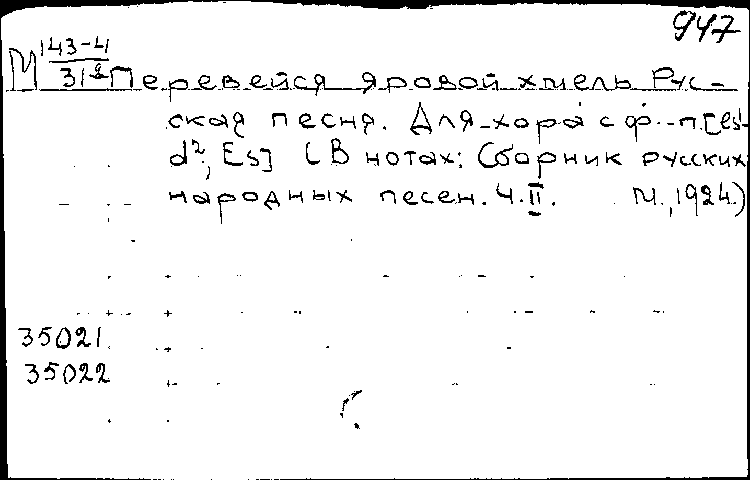 947
М 143-4/312 Перевейся яровой хмель Рус-
ская песня. Для хора с ф.-п. [es¹-
d², Es] (В нотах: Сборник русских
народных песен. Ч. II. М., 1924.)
35021
35022